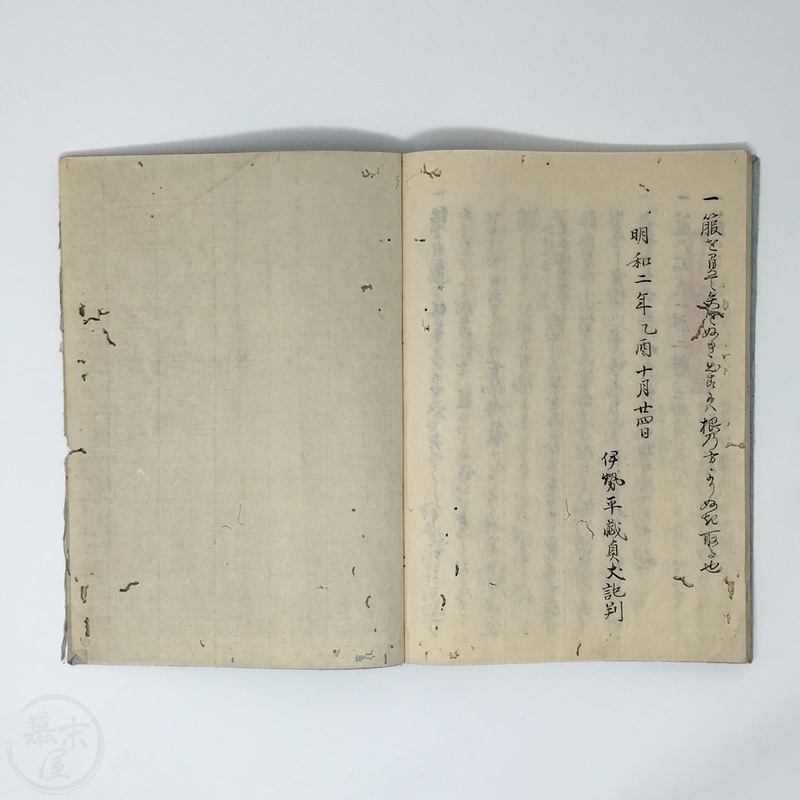 一 箙を負て矢をぬき出すハ根乃方よりぬき取る也
明和二年乙酉十月廿四日
伊勢平蔵貞丈記判
幕末屋